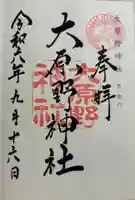 奉拝
大原野神社
大原野
神社
令和六年九月十六日